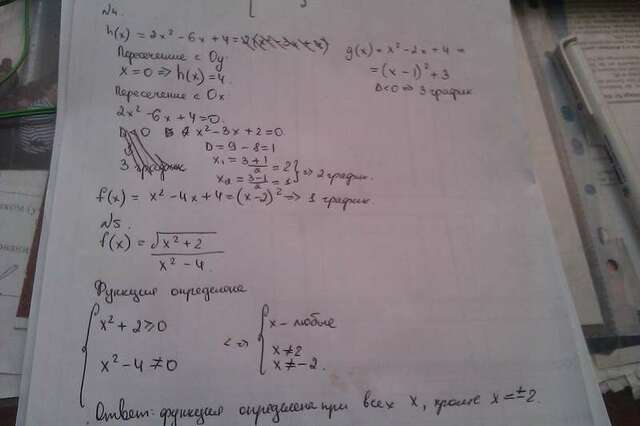 №4.
h(x) = 2x² - 6x + 4 =
Пересечение с Oy:
x = 0 => h(x) = 4.
Пересечение с Ox
2x² - 6x + 4 = 0.
x² - 3x + 2 = 0
D = 9 - 8 = 1
x₁ = (3+1)/2 = 2
x₂ = (3-1)/2 = 1 } => 2 график.
g(x) = x² - 2x + 4 =
= (x - 1)² + 3
D < 0 => 3 график
f(x) = x² - 4x + 4 = (x-2)² => 1 график.
№5.
f(x) = √(x² + 2) / (x² - 4)
Функция определена
{ x² + 2 ≥ 0
x² - 4 ≠ 0
<=> { x - любые
x ≠ 2
x ≠ -2.
Ответ: функция определена при всех x, кроме x = ±2.